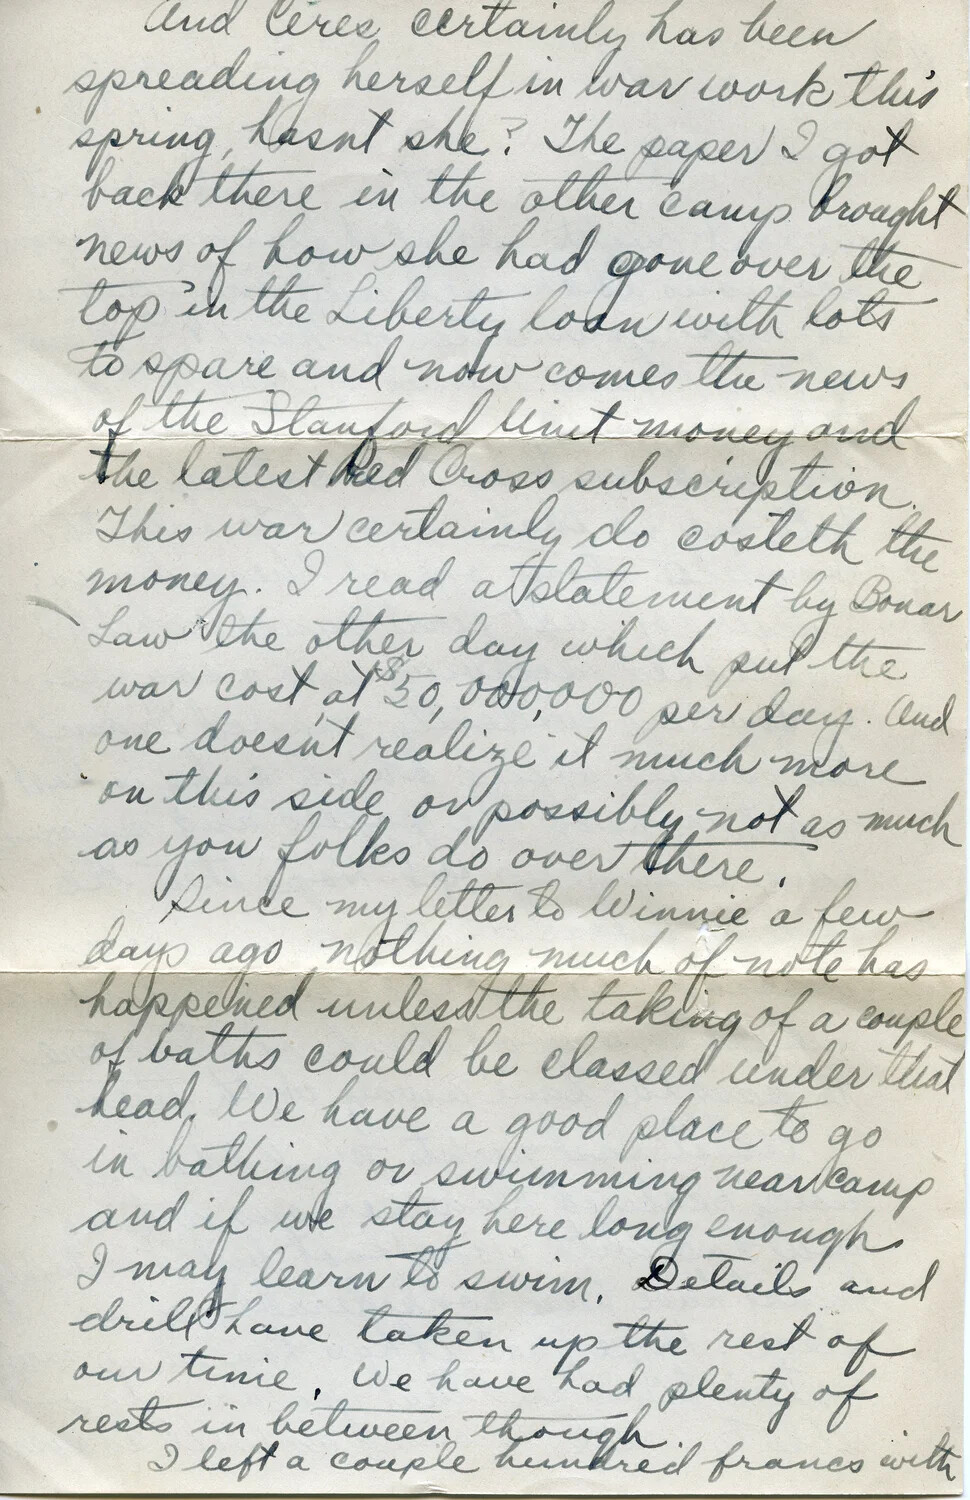 And Ceres certainly has been
spreading herself in war work this
spring, hasnt she? The paper I got
back there in the other camp brought
news of how she had gone over the
top in the Liberty loan with lots
to spare and now comes the news
of the Stanford Unit money and
the latest Red Cross subscription.
This war certainly do costeth the
money. I read a statement by Bonar
Law the other day which put the
war cost at $50,000,000 per day. And
one doesn't realize it much more
on this side or possibly not as much
as you folks do over there.
Since my letter to Winnie a few
days ago nothing much of note has
happened unless the taking of a couple
of baths could be classed under that
head. We have a good place to go
in bathing or swimming near camp
and if we stay here long enough
I may learn to swim. Details and
drill have taken up the rest of
our time. We have had plenty of
rests in between though.
I left a couple hundred francs with